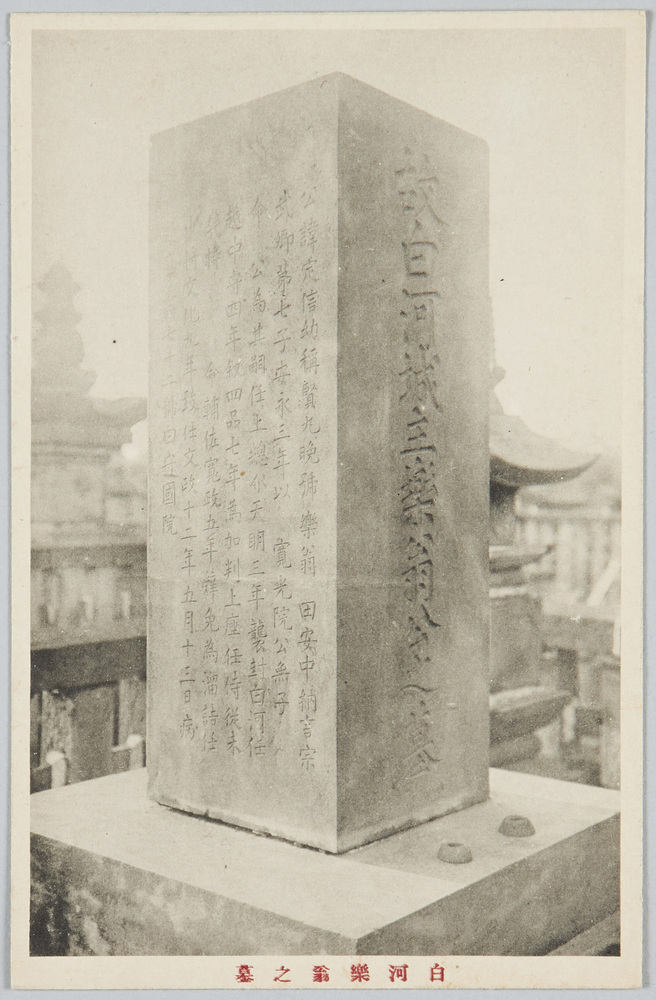 故白河城主樂翁公之墓
公諱定信幼稱賢丸晩號樂翁 田安中納言宗
武卿第七子安永三年以 寛光院公無子
令 公為其嗣任上總介天明三年襲封白河任
越中守四年敍四品七年為加判上座任侍從未
幾特 命輔佐寛政五年辭免為溜詰任
少將文化九年致仕文政十二年五月十三日病
七十二號曰守國院
白河樂翁之墓